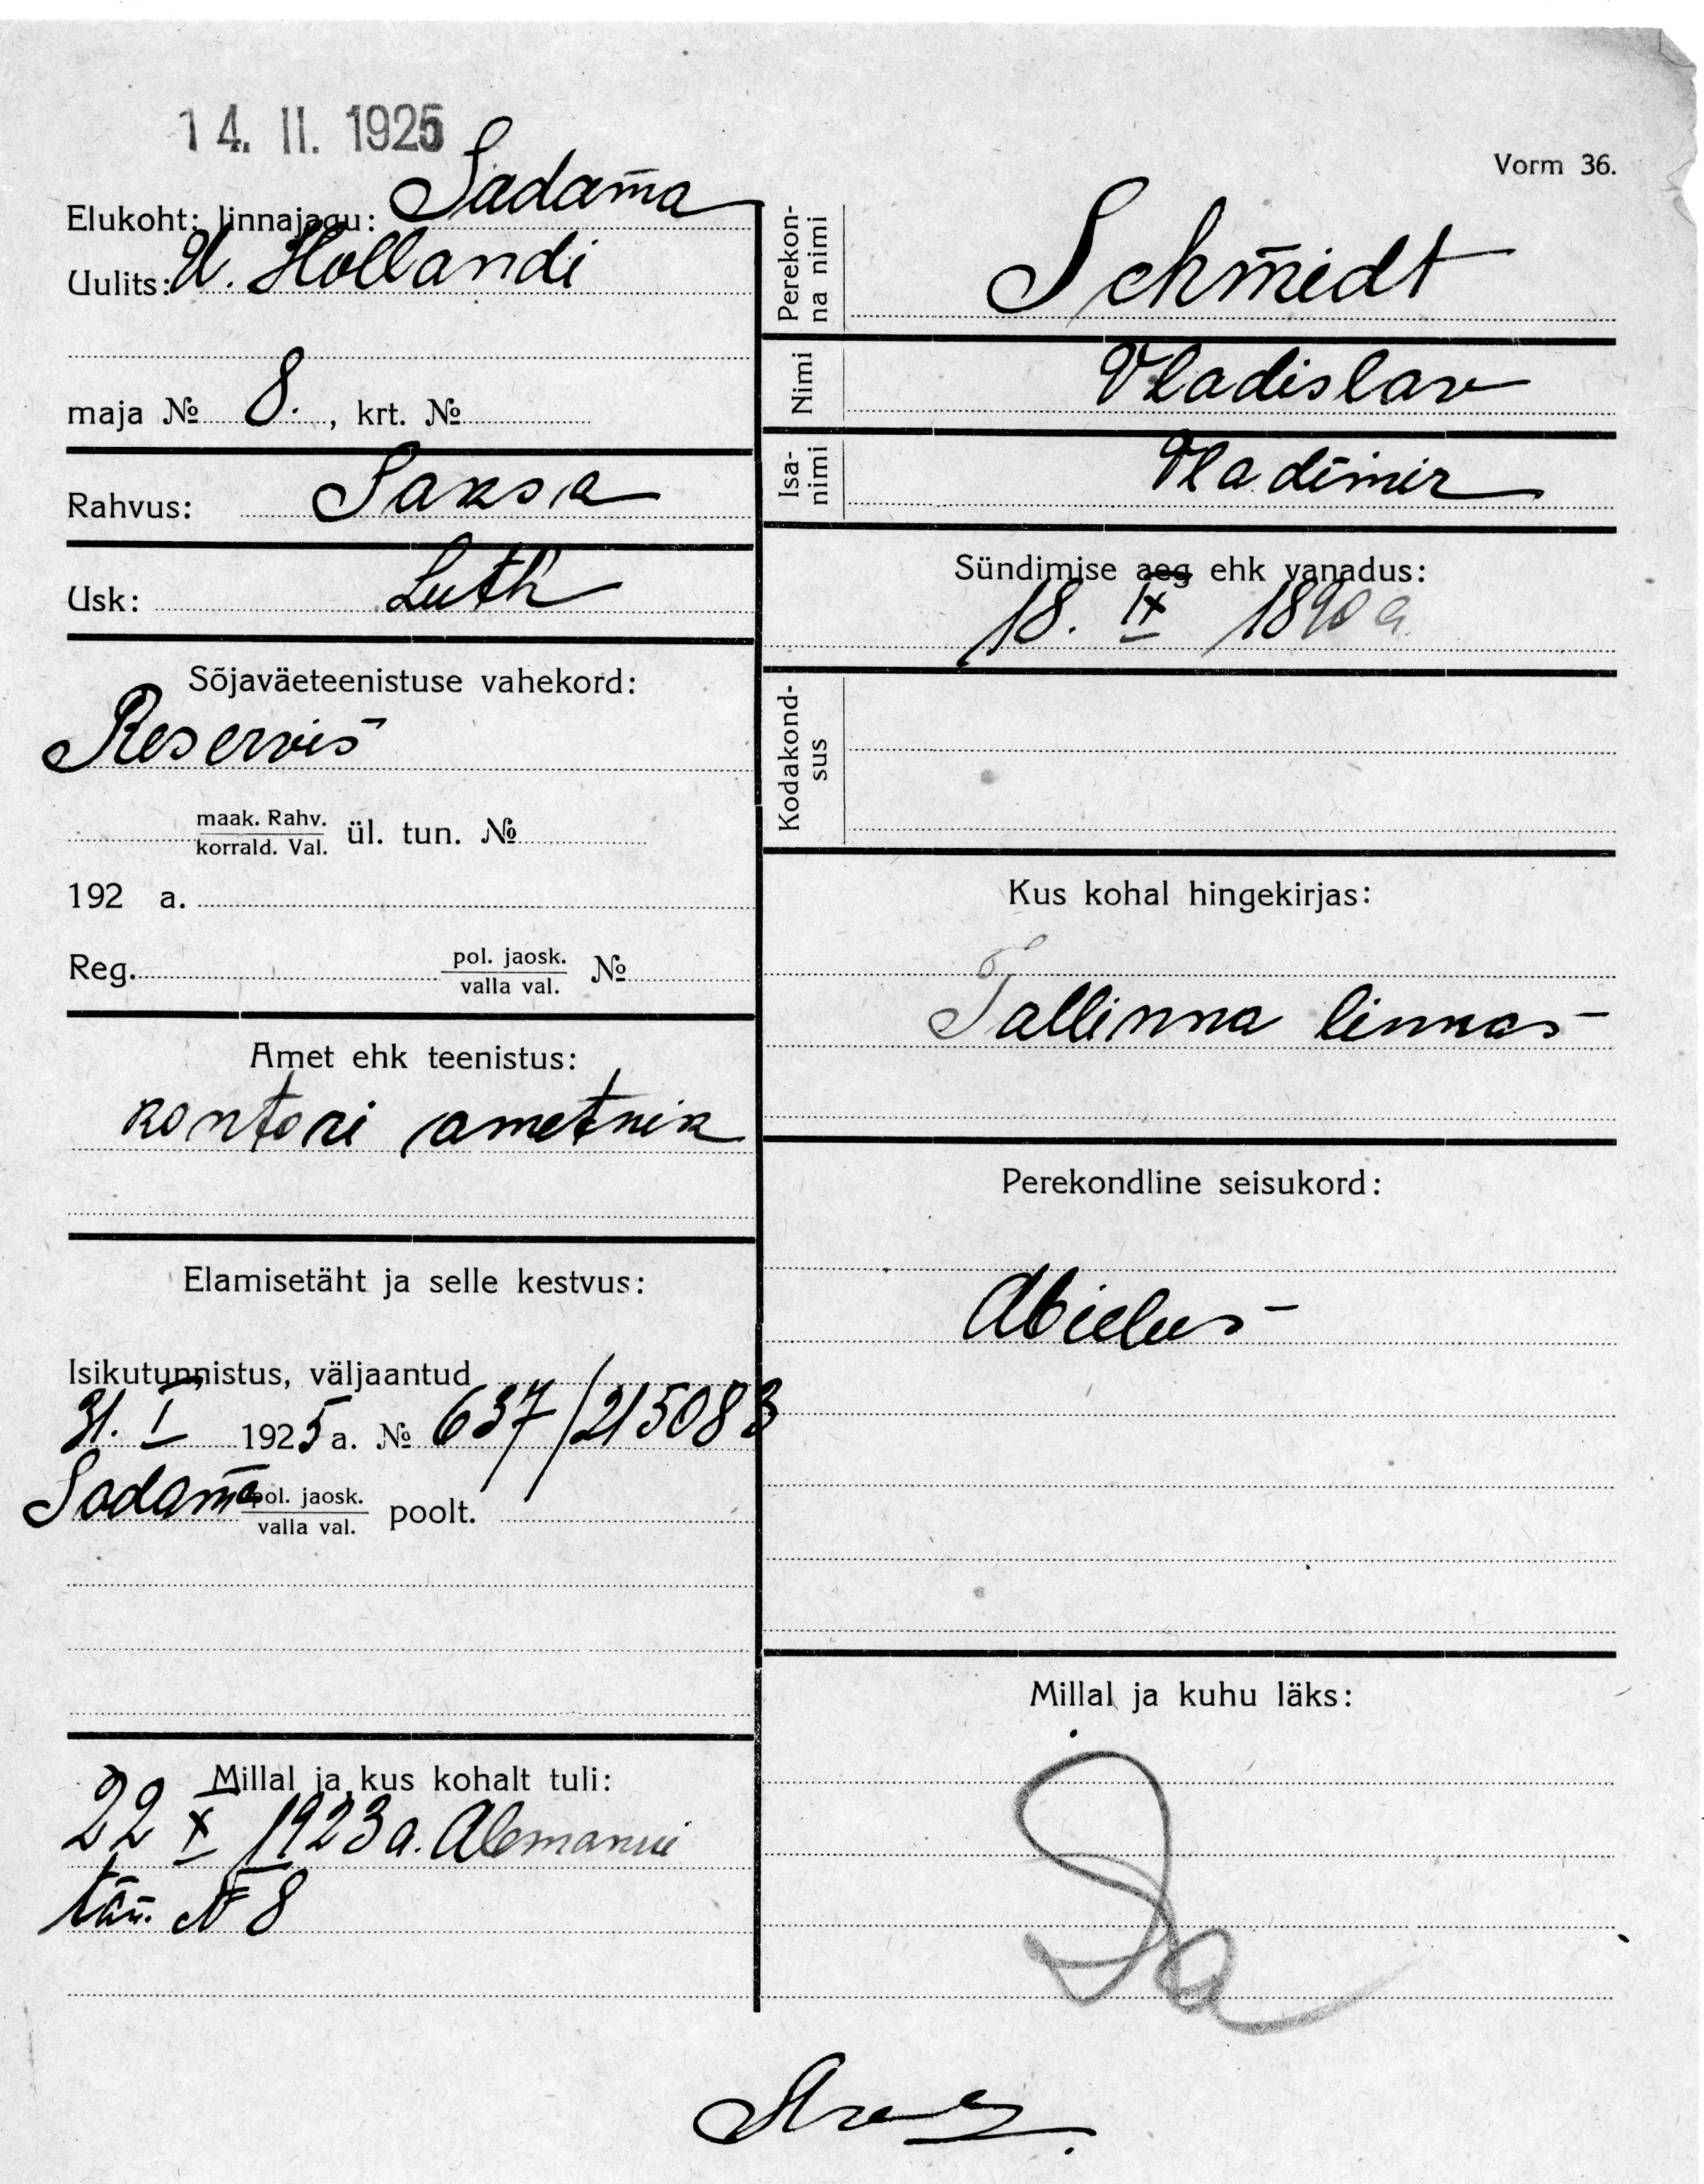 14. II. 1925
Vorm 36.
Elukoht: linnajagu: Sadama
Uulits: U. Hollandi
maja № 8., krt. №
Rahvus: Saksa
Usk: Luth
Sõjaväeteenistuse vahekord:
Reservis
maak. Rahv.
korrald. Val. ül. tun. №
192 a.
Reg. pol. jaosk.
valla val. №
Amet ehk teenistus:
kontori ametnik
Elamisetäht ja selle kestvus:
Isikutunnistus, väljaantud
31. I 1925 a. № 637/215083
Sadama pol. jaosk.
valla val. poolt.
Millal ja kus kohalt tuli:
22 X 1923 a. Alemanni
tän. № 8
Perekon-
na nimi
Schmidt
Nimi
Vladislav
Isa-
nimi
Vladimir
Sündimise aeg ehk vanadus:
18. IX 1890 a
Kodakond-
sus
Kus kohal hingekirjas:
Tallinna linnas
Perekondline seisukord:
Abielus
Millal ja kuhu läks: